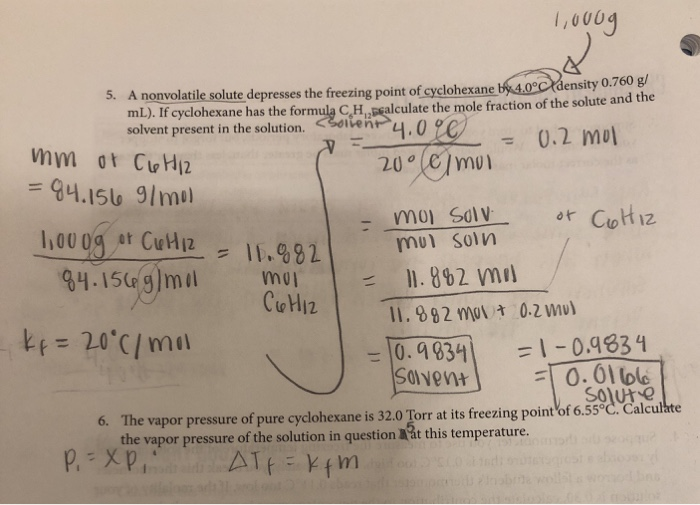 1,000g
5. A nonvolatile solute depresses the freezing point of cyclohexane by 4.0°C (density 0.760 g/
mL). If cyclohexane has the formula C6H12, calculate the mole fraction of the solute and the
solvent present in the solution.
solvent
mm of C6H12
= 84.156 g/mol
1,000g of C6H12
84.156 g/mol
= 11.882
mol
C6H12
kf = 20°C/mol
= 4.0°C
20°C/mol
= 0.2 mol
= mol solv of C6H12
mol soln
= 11.882 mol
11.882 mol + 0.2 mol
= 0.9834
solvent
= 1 - 0.9834
= 0.0166
solute
6. The vapor pressure of pure cyclohexane is 32.0 Torr at its freezing point of 6.55°C. Calculate
the vapor pressure of the solution in question 5 at this temperature.
P₁ = XP₁°
ΔTf = kfm